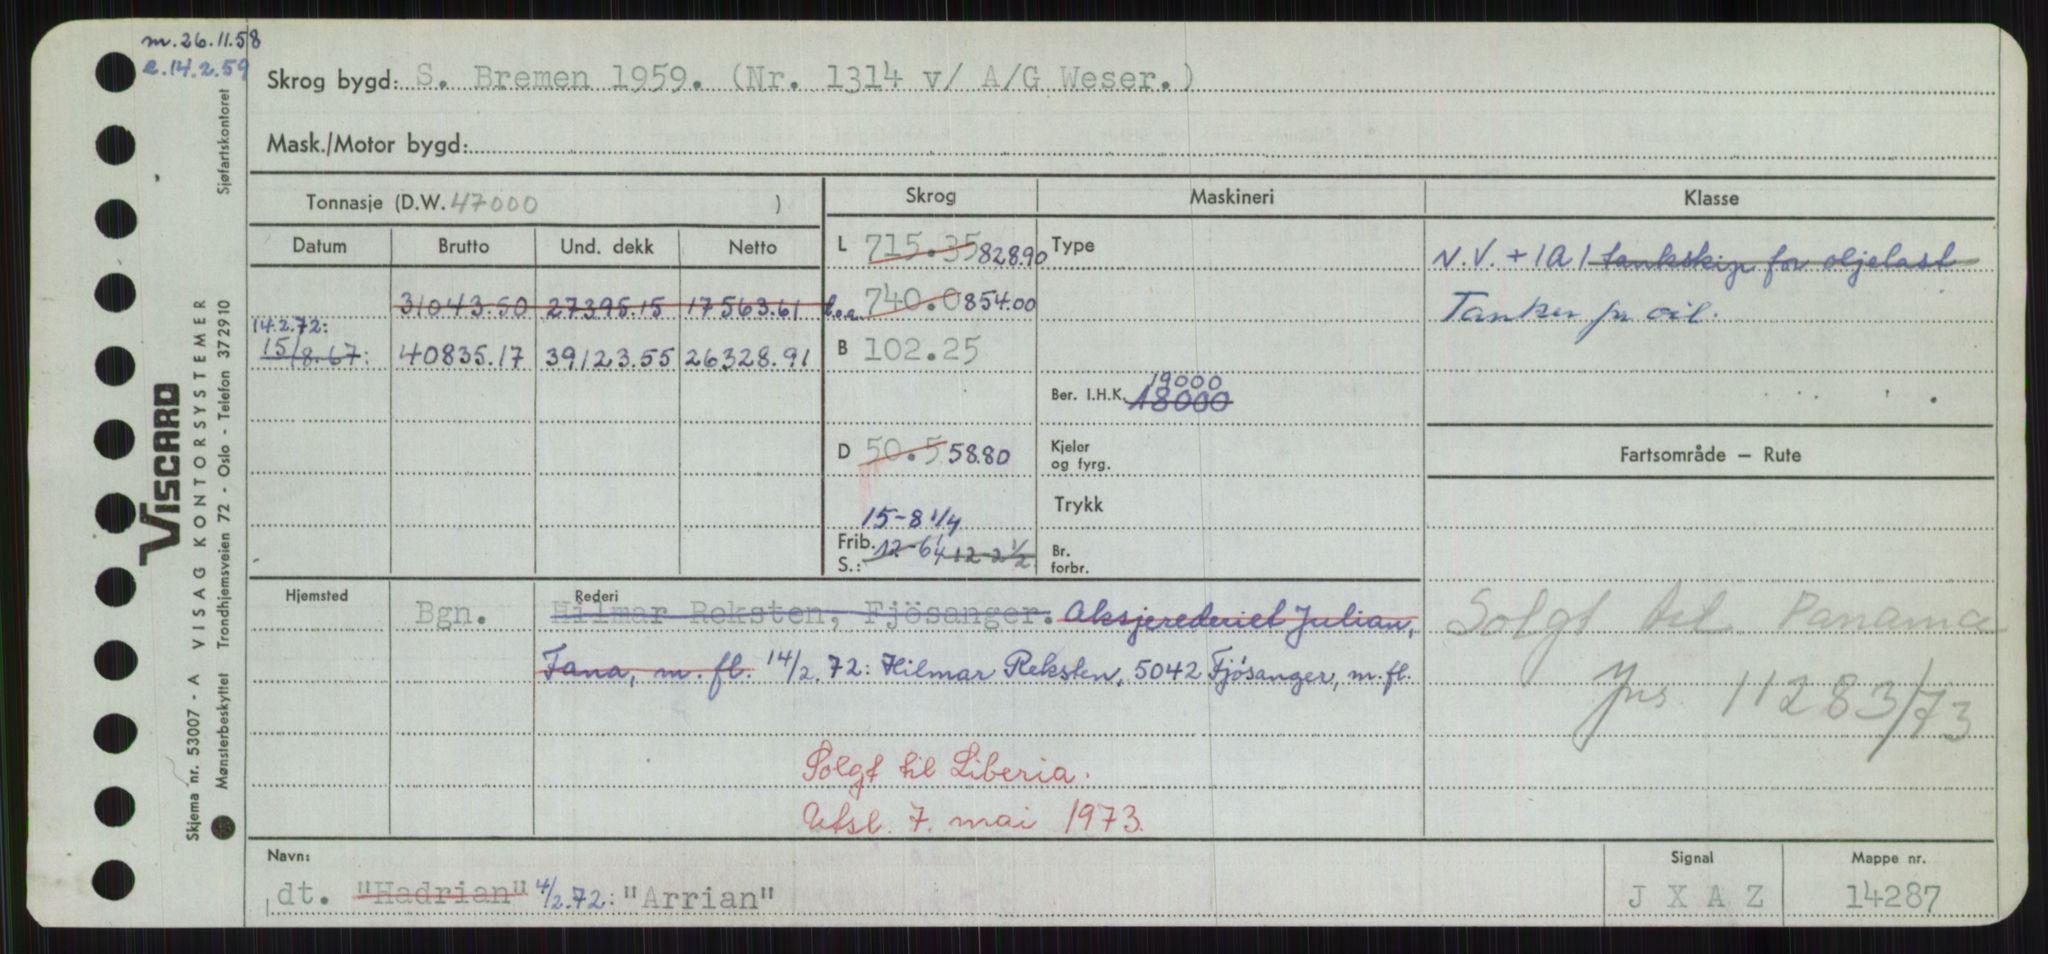 m. 26.11.58
e. 14.2.59
Skrog bygd: S. Bremen 1959. (Nr. 1314 v/ A/G Weser.)
Mask./Motor bygd:
Tonnasje (D.W. 47000 )
Skrog
Maskineri
Klasse
Datum
Brutto
Und. dekk
Netto
L 715.35 828.90
Type
N.V. + 1A1 tankskip for oljelast
31043.50 27395.15 17563.61
l.o.a. 740.0 854.00
Tanker for oil.
14.2.72:
15/8.67: 40835.17 39123.55 26328.91
B 102.25
Ber. I.H.K. 18000 19000
D 50.5 58.80
Kjeler
og fyrg.
Fartsområde – Rute
Trykk
15-8 1/4
Frib.
S.: 12-6 1/4 12-2 1/2
Br.
forbr.
Hjemsted
Rederi
Bgn. Hilmar Reksten, Fjösanger. Aksjerederiet Julian,
Fana, m. fl. 14/2.72: Hilmar Reksten, 5042 Fjösanger, m.fl.
Solgt til Panama
Jnr 11283/73
Solgt til Liberia.
Utsl. 7. mai 1973.
Navn:
Signal
Mappe nr.
dt. "Hadrian" 4/2.72: "Arrian"
J X A Z
14287
Sjøfartskontoret
VISCARD
VISAG KONTORSYSTEMER
Trondhjemsveien 72 - Oslo - Telefon 372910
Skjema nr. 53007 - A
Mønsterbeskyttet